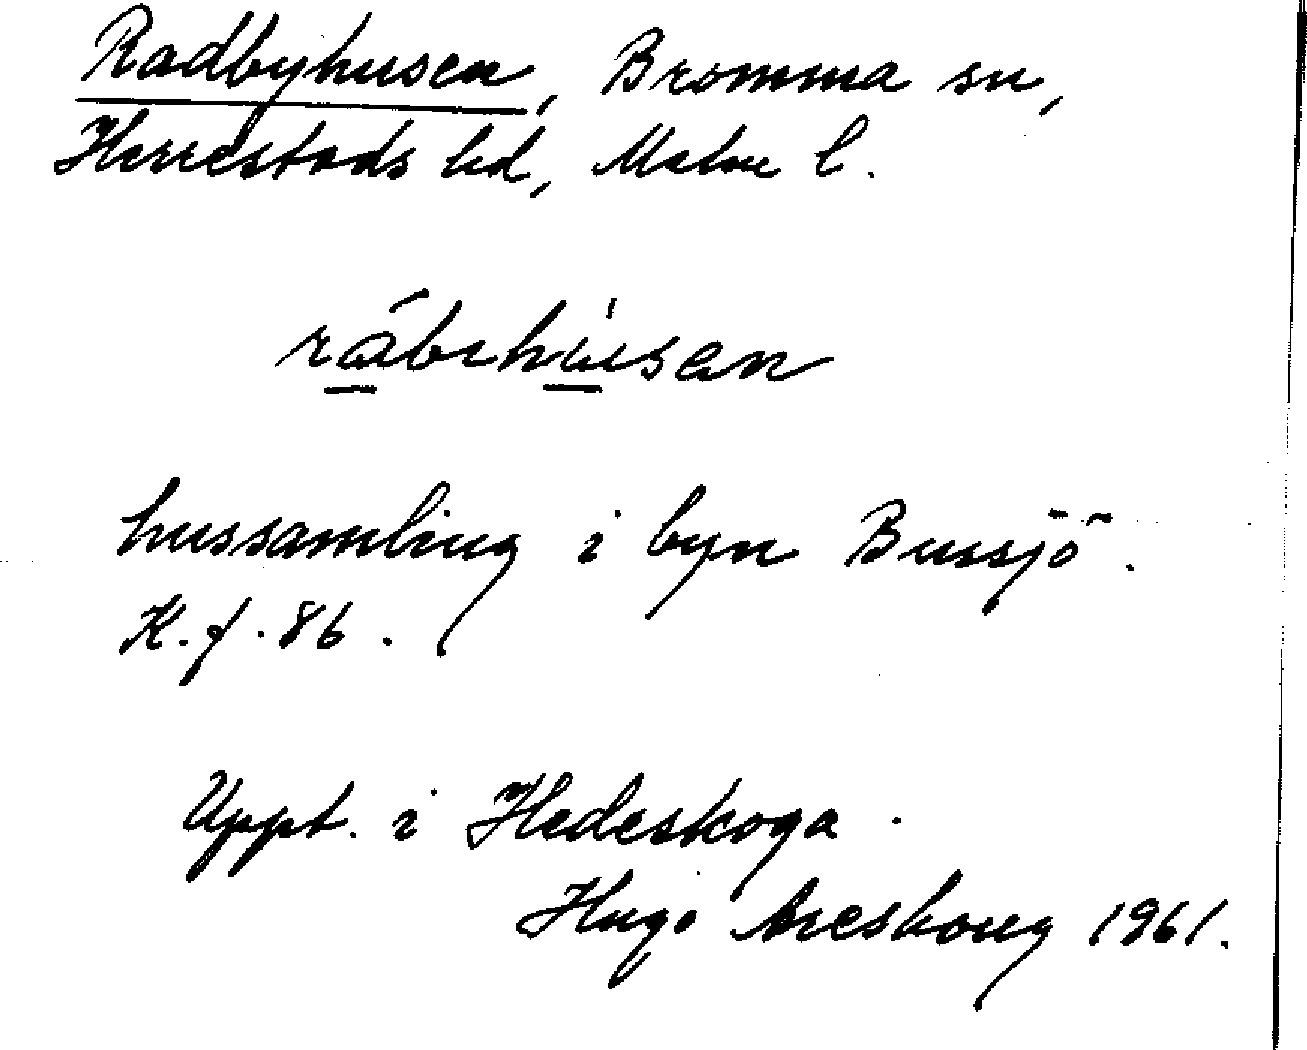 Radbyhusen, Bromma sn,
Herrestads hd, Malm l.
rábihúsan
hussamling i byn Bussjö.
K.f. 86.
Uppt. i Hedeskoga.
Hugo Areskoug 1961.